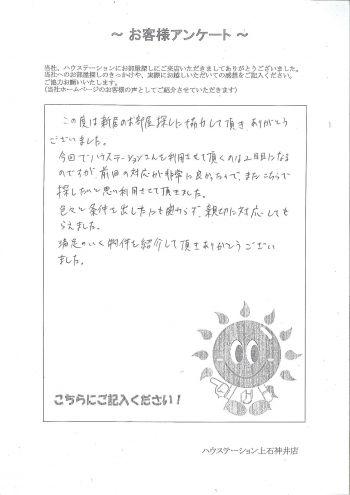 ～ お客様アンケート ～
当社、ハウステーションにお部屋探しにご来店いただきましてありがとうございました。
当社へのお部屋探しのきっかけや、実際にお越しいただいての感想をご記入ください。
ご協力お願いいたします。
(当社ホームページのお客様の声としてご紹介させていただきます)
この度は新居のお部屋探しに協力して頂きありがとう
ございました。
今回でハウステーションさんを利用させて頂くのは2回目になる
のですが、前回の対応が非常に良かったので、またこちらで
探したいと思い利用させて頂きました。
色々と条件を出したにも関わらず、親切に対応しても
らえました。
満足のいく物件を紹介して頂きありがとうござい
ました。
こちらにご記入ください！
ハウステーション上石神井店